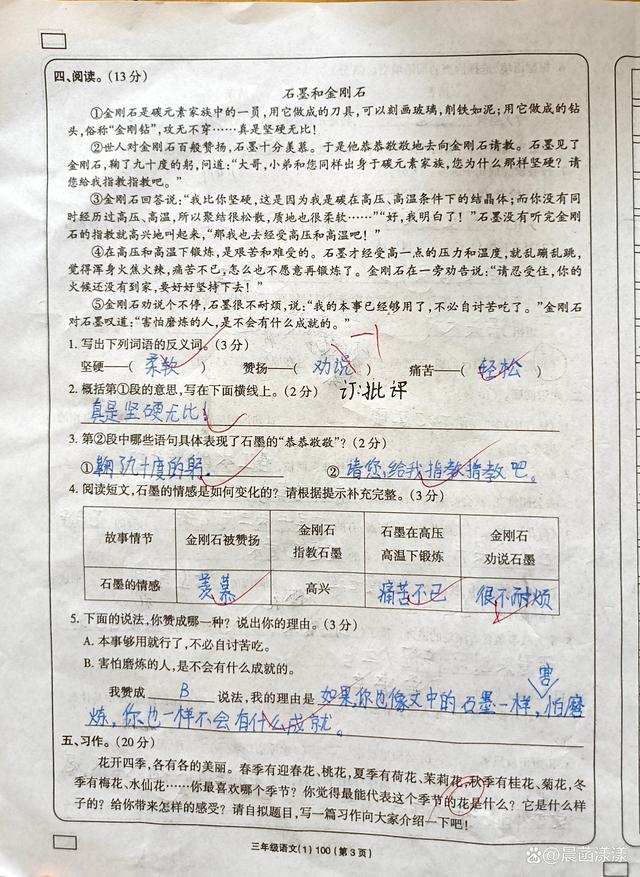 四、阅读。(13分)
石墨和金刚石
①金刚石是碳元素家族中的一员,用它做成的刀具,可以刻画玻璃,削铁如泥;用它做成的钻
头,俗称“金刚钻”,攻无不穿……真是坚硬无比!
②世人对金刚石百般赞扬,石墨十分羡慕。于是他恭恭敬敬地去向金刚石请教。石墨见了
金刚石,鞠了九十度的躬,问道:“大哥,小弟和您同样出身于碳元素家族,您为什么那样坚硬?请
您给我指教指教吧。”
③金刚石回答说:“我比你坚硬,这是因为我是碳在高压、高温条件下的结晶体;而你没有同
时经历过高压、高温,所以聚结很松散,质地也很柔软……”“好,我明白了!”石墨没有听完金刚
石的指教就高兴地叫起来,“那我也去经受高压和高温吧!”
④在高压和高温下锻炼,是艰苦和难受的。石墨才经受高一点的压力和温度,就乱蹦乱跳,
觉得浑身火焦火辣,痛苦不已,怎么也不愿意再锻炼了。金刚石在一旁劝告说:“请忍受住,你的
火候还没有到家,要好好坚持下去!”
⑤金刚石劝说个不停,石墨很不耐烦,说:“我的本事已经够用了,不必自讨苦吃了。”金刚石
对石墨叹道:“害怕磨炼的人,是不会有什么成就的。”
1. 写出下列词语的反义词。(3分) -1
坚硬——( 柔软 ) 赞扬——( 劝说 ) 痛苦——( 轻松 )
2. 概括第①段的意思,写在下面横线上。(2分) 订:批评
真是坚硬无比!
3. 第②段中哪些语句具体表现了石墨的“恭恭敬敬”?(2分)
①鞠九十度的躬. ②请您,给我指教指教吧。
4. 阅读短文,石墨的情感是如何变化的?请根据提示补充完整。(3分)
故事情节 金刚石被赞扬 金刚石指教石墨 石墨在高压高温下锻炼 金刚石劝说石墨
石墨的情感 羡慕 高兴 痛苦不已 很不耐烦
5. 下面的说法,你赞成哪一种?说出你的理由。(3分)
A. 本事够用就行了,不必自讨苦吃。
B. 害怕磨炼的人,是不会有什么成就的。
我赞成 B 说法,我的理由是 如果,你也像文中的石墨一样,害怕磨
炼,你也一样不会有什么成就。
五、习作。(20分)
花开四季,各有各的美丽。春季有迎春花、桃花,夏季有荷花、茉莉花,秋季有桂花、菊花,冬
季有梅花、水仙花……你最喜欢哪个季节?你觉得最能代表这个季节的花是什么?它是什么样
子的?给你带来怎样的感受?请自拟题目,写一篇习作向大家介绍一下吧!
三年级语文(1) 100 (第3页)
@晨菡漾漾